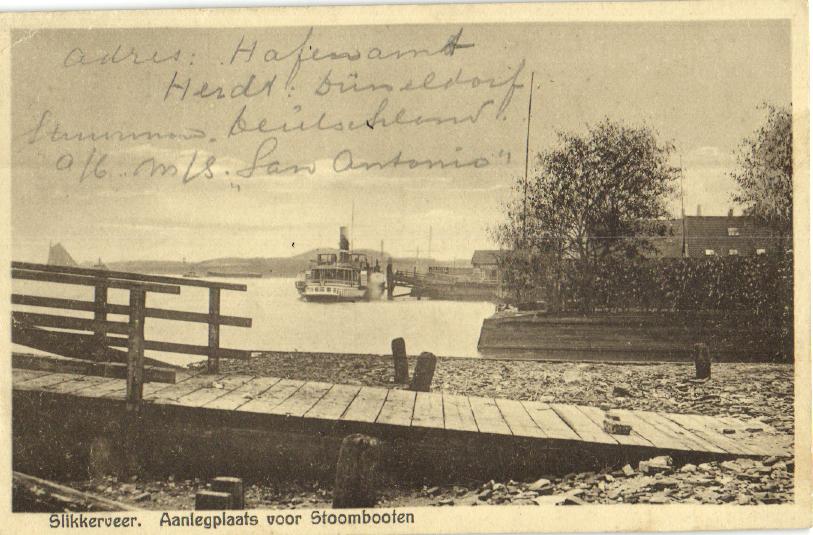 adres: Hafenamt
Herdt: Düsseldorf
Deutschland.
a/b. m/s. "San Antonio"
Slikkerveer. Aanlegplaats voor Stoombooten